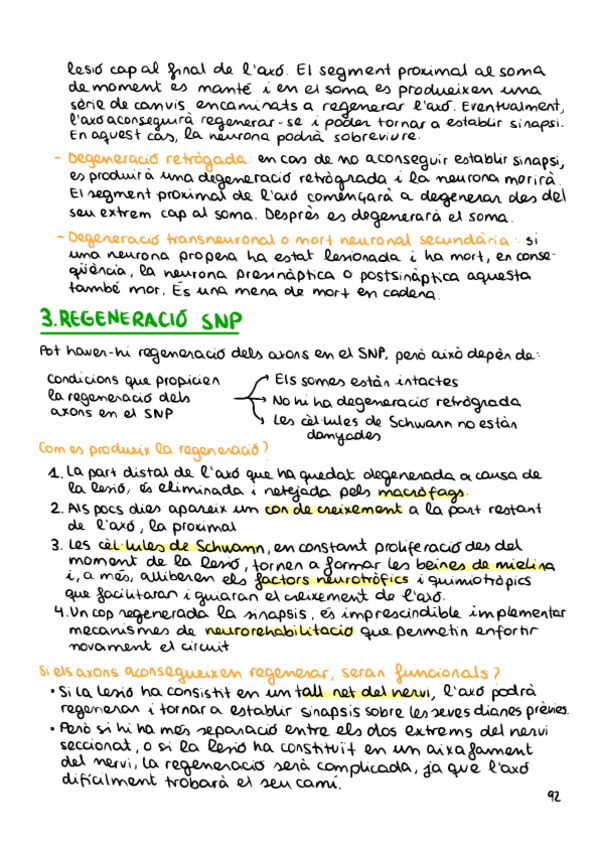 lesió cap al final de l'axó. El segment proximal al soma
de moment es manté i en el soma es produeixen una
sèrie de canvis encaminats a regenerar l'axó. Eventualment,
l'axó aconseguirà regenerar-se i poder tornar a establir sinapsi.
En aquest cas, la neurona podrà sobreviure.
- Degeneració retrògada: en cas de no aconseguir establir sinapsi,
es produirà una degeneració retrògrada i la neurona morirà.
El segment proximal de l'axó començarà a degenerar des del
seu extrem cap al soma. Desprès es degenerarà el soma.
- Degeneració transneuronal o mort neuronal secundària: si
una neurona propera ha estat lesionada i ha mort, en conse-
qüència, la neurona presinàptica o postsinàptica aquesta
també mor. És una mena de mort en cadena.
3. REGENERACIÓ SNP
Pot haver-hi regeneració dels axons en el SNP, però això depèn de:
condicions que propicien
la regeneració dels
axons en el SNP
Els somes estàn intactes
No hi ha degeneració retrògrada
Les cèl·lules de Schwann no estàn
danyades
Com es produeix la regeneració?
1. La part distal de l'axó que ha quedat degenerada a causa de
la lesió, és eliminada i netejada pels macròfags.
2. Als pocs dies apareix un con de creixement a la part restant
de l'axó, la proximal
3. Les cèl·lules de Schwann, en constant proliferació des del
moment de la lesió, tornen a formar les beines de mielina
i, a més, alliberen els factors neurotròfics i quimiotròpics
que facilitaran i guiaran el creixement de l'axó.
4. Un cop regenerada la sinapsis, és imprescindible implementar
mecanismes de neurorehabilitació que permetin enfortir
novament el circuit
Si els axons aconsegueixen regenerar, seran funcionals?
• Si la lesió ha consistit en un tall net del nervi, l'axó podrà
regenerar i tornar a establir sinapsis sobre les seves dianes prèvies.
• Però si hi ha més separació entre els dos extrems del nervi
seccionat, o si la lesió ha constituït en un aixafament
del nervi, la regeneració serà complicada, ja que l'axó
difícilment trobarà el seu camí.
92